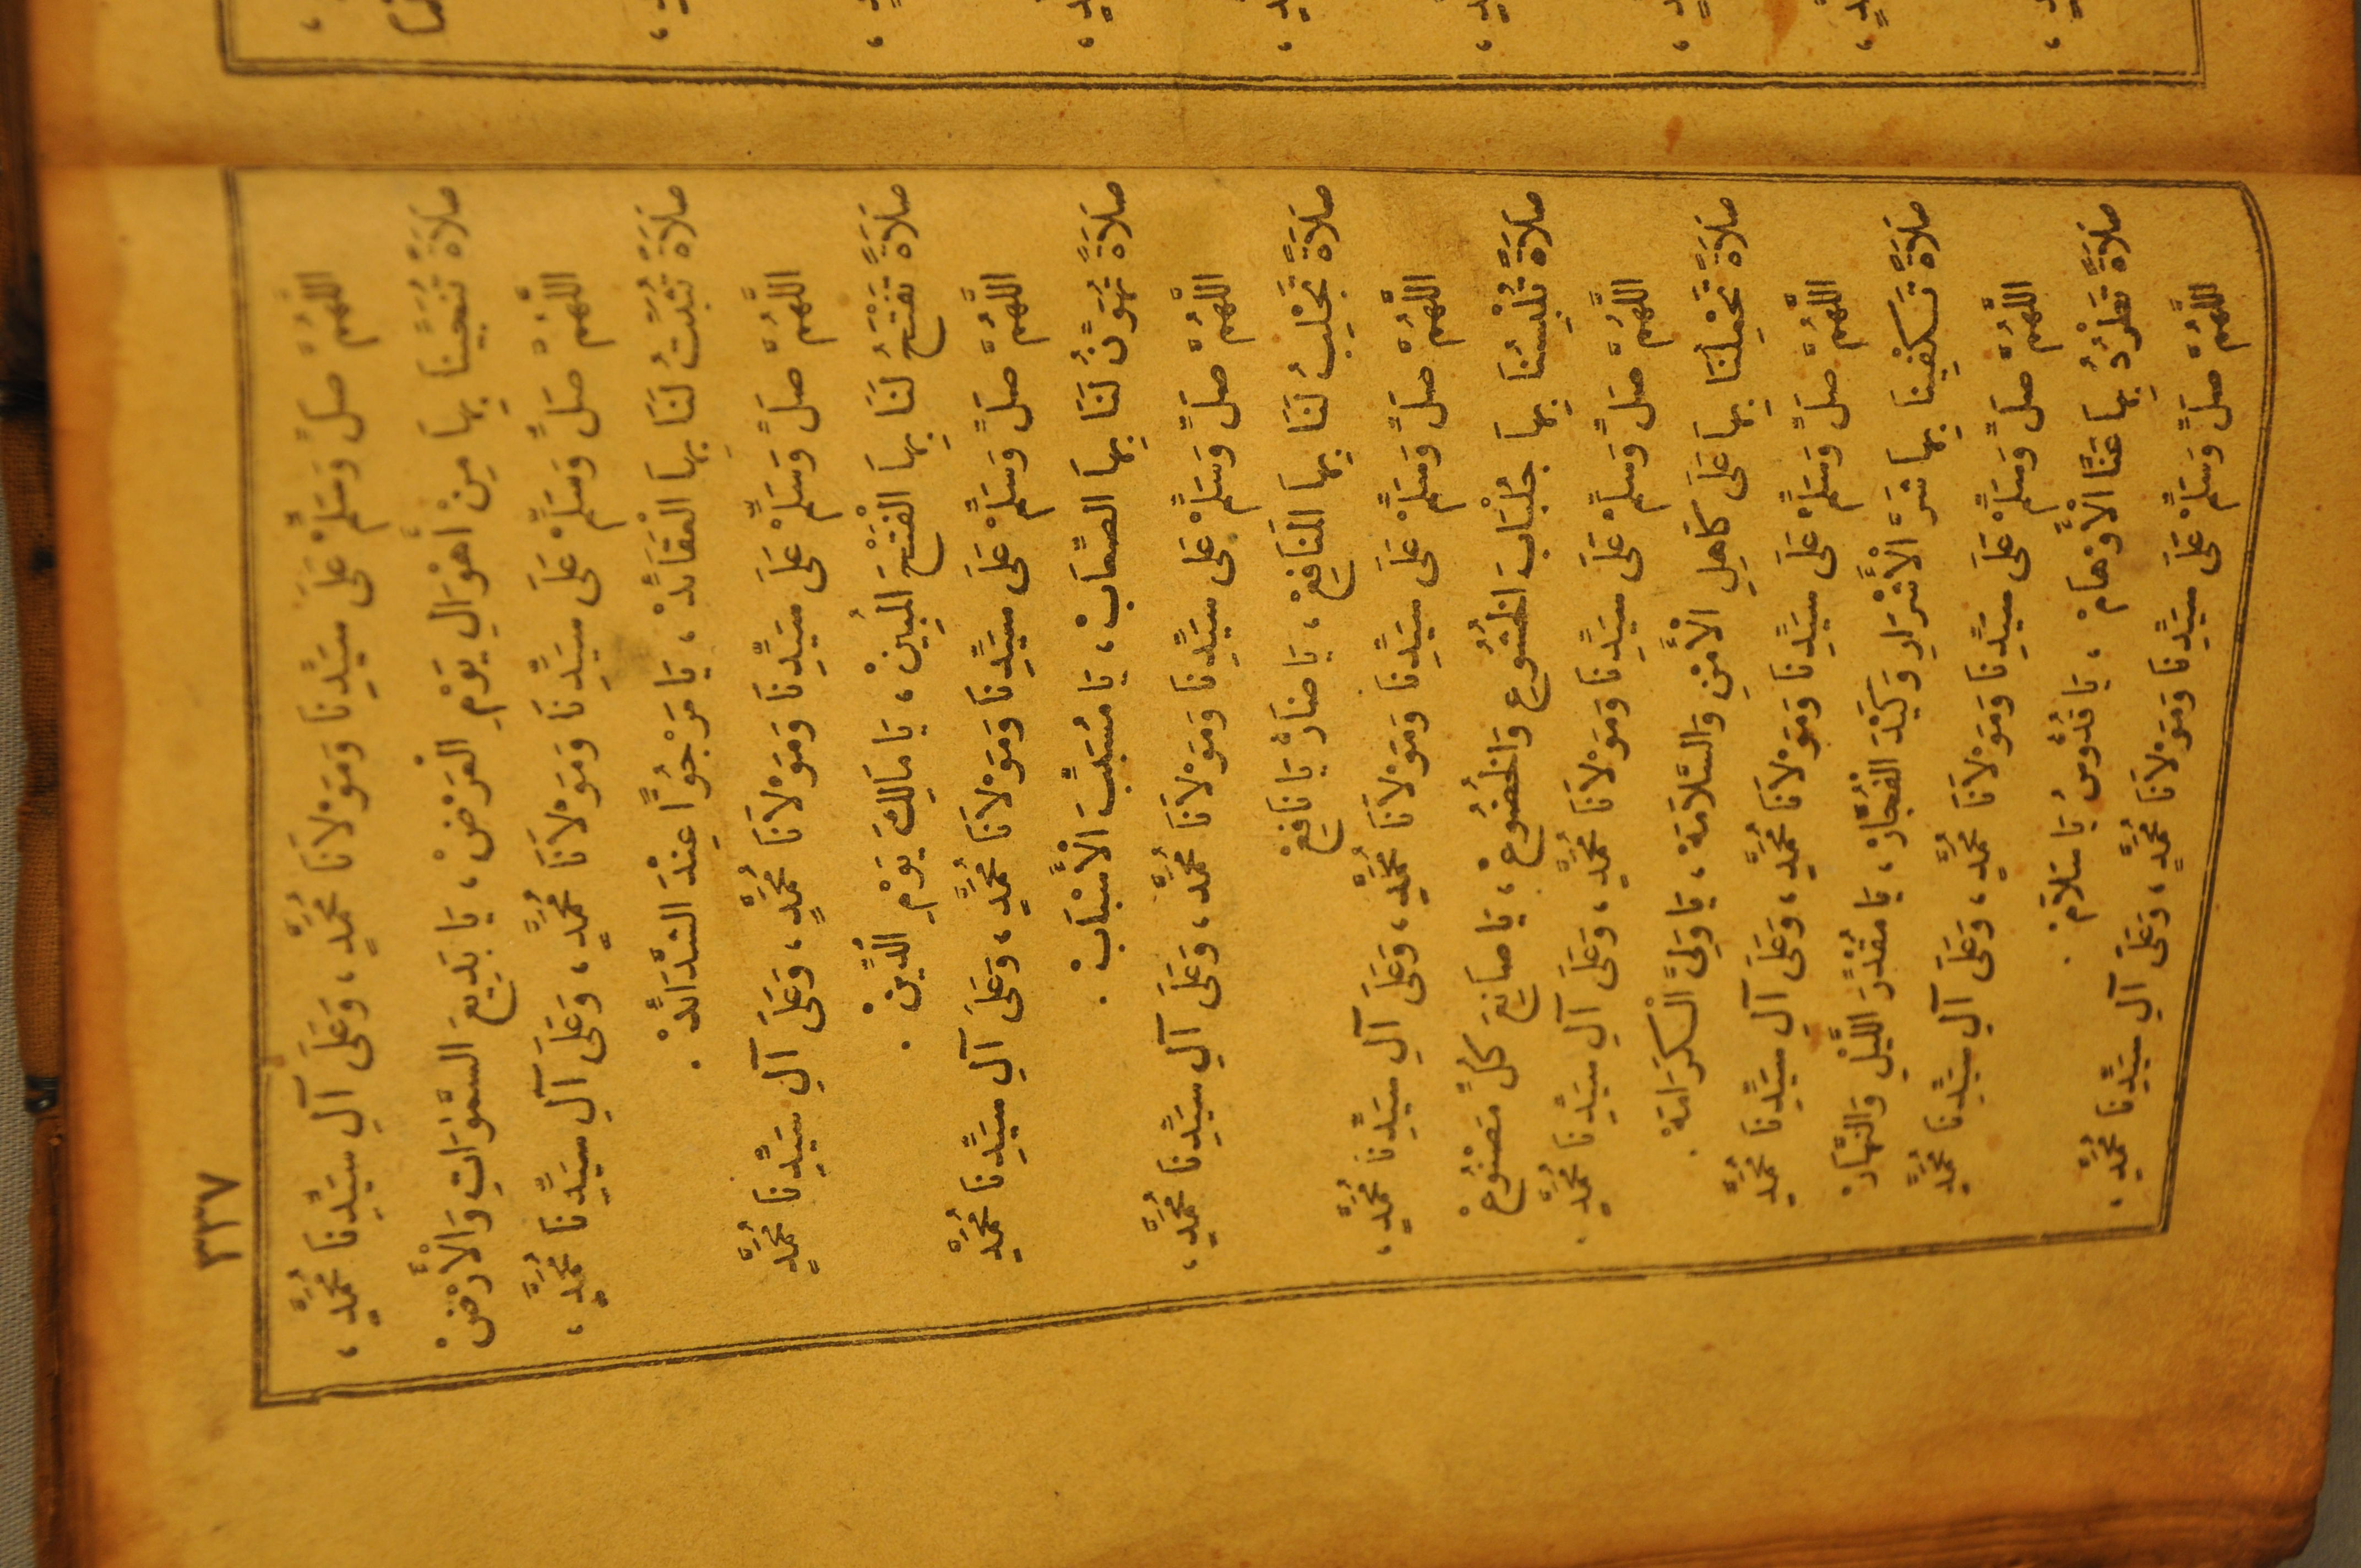 ٣٣٧
اللَّهُمَّ صَلِّ وَسَلِّمْ عَلَى سَيِّدِنَا وَمَوْلَانَا مُحَمَّدٍ، وَعَلَى آلِ سَيِّدِنَا مُحَمَّدٍ،
صَلَاةً تُنَجِّينَا بِهَا مِنْ أَهْوَالِ يَوْمِ الْعَرْضْ، يَا بَدِيعَ السَّمٰوَاتِ وَالْأَرْضْ
اللَّهُمَّ صَلِّ وَسَلِّمْ عَلَى سَيِّدِنَا وَمَوْلَانَا مُحَمَّدٍ، وَعَلَى آلِ سَيِّدِنَا مُحَمَّدٍ،
صَلَاةً تُثَبِّتُ لَنَا بِهَا الْعَقَائِدْ، يَا مَرْجُوًّا عِنْدَ الشَّدَائِدْ.
اللَّهُمَّ صَلِّ وَسَلِّمْ عَلَى سَيِّدِنَا وَمَوْلَانَا مُحَمَّدٍ، وَعَلَى آلِ سَيِّدِنَا مُحَمَّدٍ
صَلَاةً تَفْتَحُ لَنَا بِهَا الْفَتْحَ الْمُبِينْ، يَا مَالِكَ يَوْمِ الدِّينْ.
اللَّهُمَّ صَلِّ وَسَلِّمْ عَلَى سَيِّدِنَا وَمَوْلَانَا مُحَمَّدٍ، وَعَلَى آلِ سَيِّدِنَا مُحَمَّدٍ
صَلَاةً تُهَوِّنُ لَنَا بِهَا الصِّعَابْ، يَا مُسَبِّبَ الْأَسْبَابْ.
اللَّهُمَّ صَلِّ وَسَلِّمْ عَلَى سَيِّدِنَا وَمَوْلَانَا مُحَمَّدٍ، وَعَلَى آلِ سَيِّدِنَا مُحَمَّدٍ،
صَلَاةً تَجْلِبُ لَنَا بِهَا الْمَنَافِعْ، يَا ضَارُّ يَا نَافِعْ
اللَّهُمَّ صَلِّ وَسَلِّمْ عَلَى سَيِّدِنَا وَمَوْلَانَا مُحَمَّدٍ، وَعَلَى آلِ سَيِّدِنَا مُحَمَّدٍ،
صَلَاةً تُلْبِسُنَا بِهَا جُلْبَابَ الْخُشُوعِ وَالْخُضُوعْ، يَا صَانِعَ كُلِّ مَصْنُوعْ
اللَّهُمَّ صَلِّ وَسَلِّمْ عَلَى سَيِّدِنَا وَمَوْلَانَا مُحَمَّدٍ، وَعَلَى آلِ سَيِّدِنَا مُحَمَّدٍ.
صَلَاةً تَحْمِلُنَا بِهَا عَلَى كَاهِلِ الْأَمْنِ وَالسَّلَامَةْ، يَا وَلِيَّ الْكَرَامَةْ.
اللَّهُمَّ صَلِّ وَسَلِّمْ عَلَى سَيِّدِنَا وَمَوْلَانَا مُحَمَّدٍ، وَعَلَى آلِ سَيِّدِنَا مُحَمَّدٍ
صَلَاةً تَكْفِينَا بِهَا شَرَّ الْأَشْرَارِ وَكَيْدَ الْفُجَّارْ، يَا مُقَدِّرَ اللَّيْلِ وَالنَّهَارْ
اللَّهُمَّ صَلِّ وَسَلِّمْ عَلَى سَيِّدِنَا وَمَوْلَانَا مُحَمَّدٍ، وَعَلَى آلِ سَيِّدِنَا مُحَمَّدٍ
صَلَاةً تَطْرُدُ بِهَا عَنَّا الْأَوْهَامْ، يَا قُدُّوسُ يَا سَلَامْ.
اللَّهُمَّ صَلِّ وَسَلِّمْ عَلَى سَيِّدِنَا وَمَوْلَانَا مُحَمَّدٍ، وَعَلَى آلِ سَيِّدِنَا مُحَمَّدٍ.